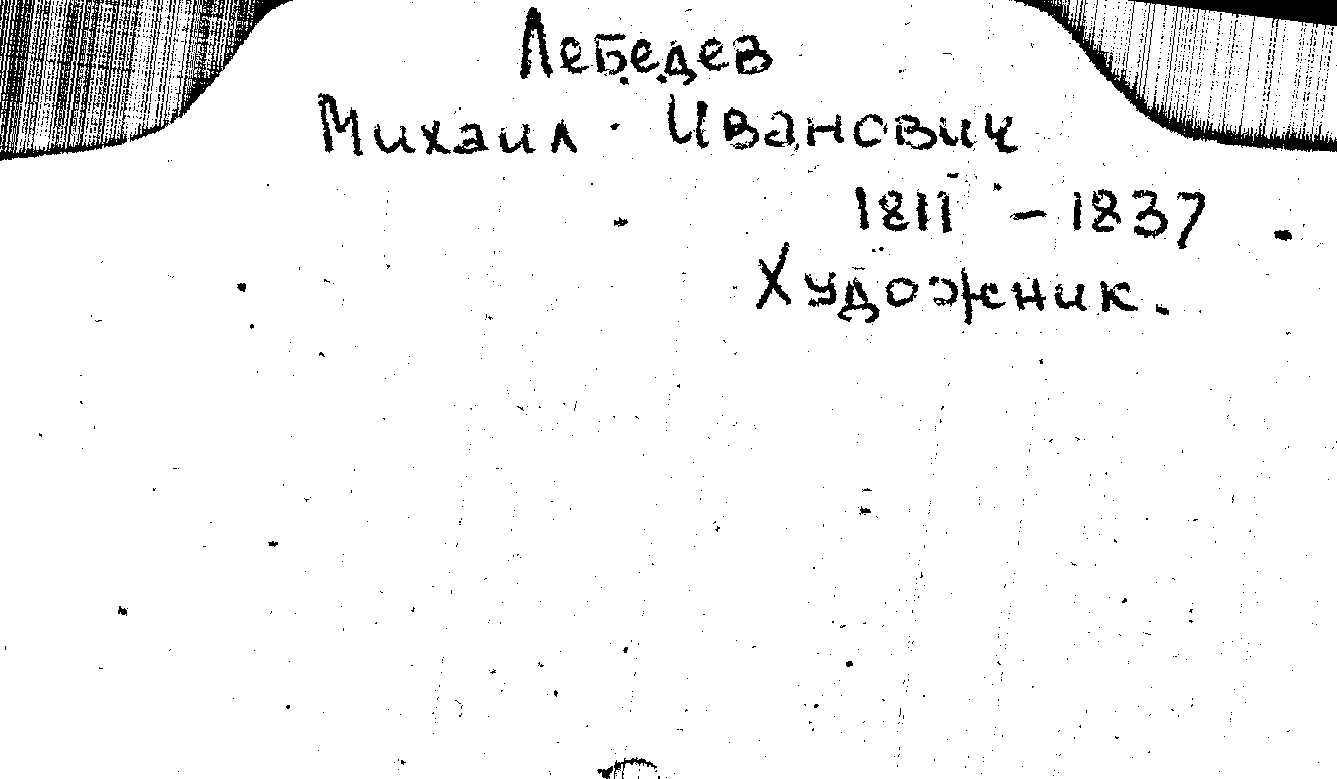 Лебедев
Михаил Иванович
1811 - 1837
Художник.